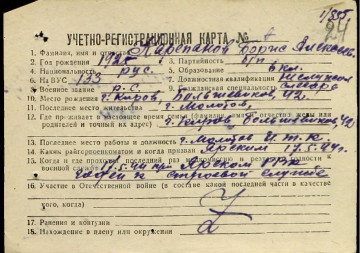 1/855
24
УЧЕТНО-РЕГИСТРАЦИОННАЯ КАРТА №
1. Фамилия, имя и отчество Борис Алексее.
2. Год рождения 1925 3. Партийность б/п
4. Национальность рус. 5. Образование 6 кл.
6. На ВУС 133 7. Должностная квалификация
8. Военное звание 9. Специальность слесарь
10. Место рождения г. Киров, Большевиков, 42.
11. Последнее место жительства г. Молотов,
12. Где проживает в настоящее время семья (фамилия, имя и отчество жены или
родителей и точный их адрес) г. Киров 42.
13. Последнее место работы и должность г. Молотов И.Т.К.
14. Каким райгорвоенкоматом и когда призван 17.5.44 г.
15. Когда и где проходил последний раз медкомиссию и результат годности к
военной службе 17.5.44 при РВК
годен к строевой службе
16. Участие в Отечественной войне (в составе какой последней части в качестве
кого, когда)
17. Ранения и контузии
18. Нахождение в плену или окружении